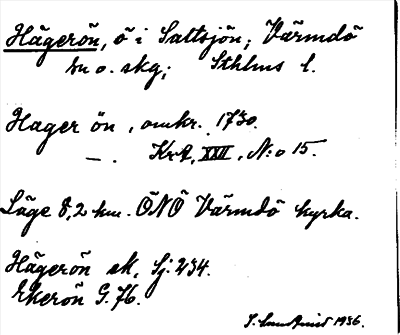 Hägerön, ö i Saltsjön, Värmdö
sn o. skg; Sthlms l.
Hager ön, omkr. 1730.
—. KrA, XXII, N:o 15.
Läge 8,2 km. ÖNÖ Värmdö kyrka.
Hägerön sk. Sj. 234.
Ekerön G. 76.
S. Lundquist 1936.